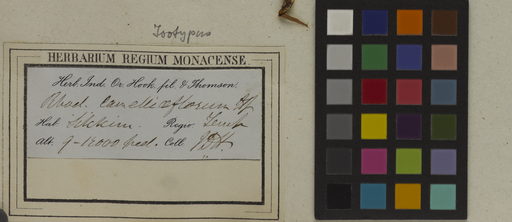 Isotypus
HERBARIUM REGIUM MONACENSE
Herb. Ind. Or. Hook. fil. & Thomson.
Rhod. camelliæflorum Hf
Hab. Sikkim. Regio Temp.
Alt. 9-12000 ped. Coll. J.D.H.